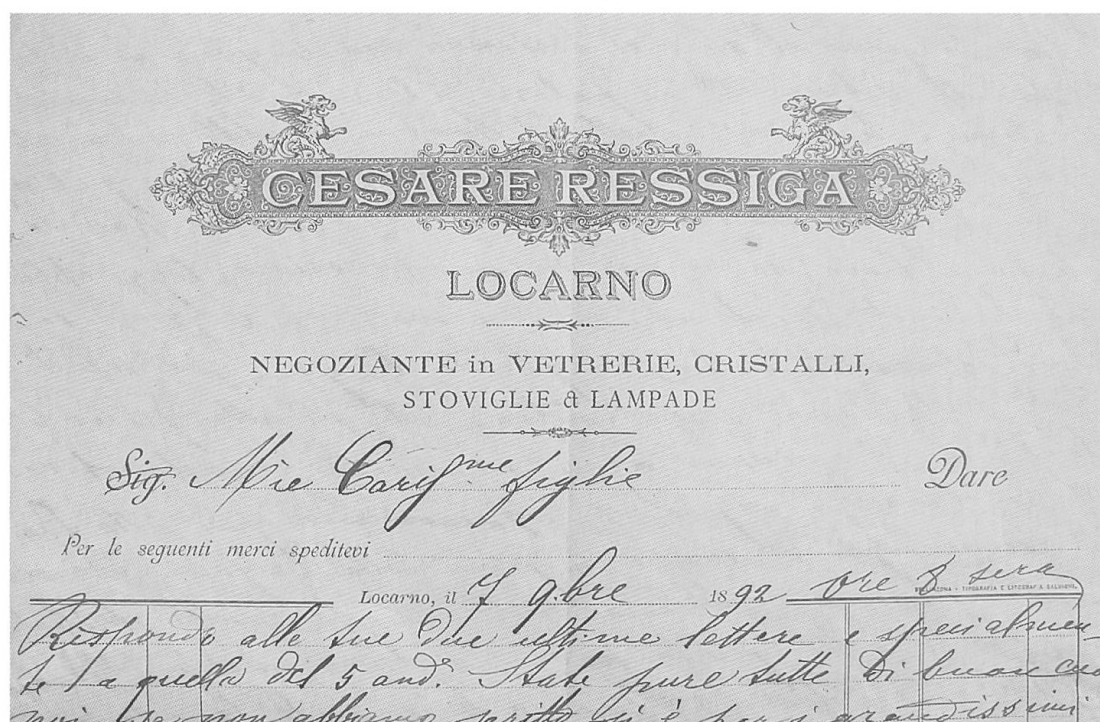 CESARE RESSIGA
LOCARNO
NEGOZIANTE in VETRERIE, CRISTALLI,
STOVIGLIE & LAMPADE
Sig. Mie Cariss.me figlie Dare
Per le seguenti merci speditevi
Locarno, il 7 9.bre 1892 ore 8 sera
TIPOGRAFIA E LITOGRAF
Rispondo alle tue due ultime lettere e specialmen-
te a quella del 5 and.e State pure tutte di buon
noi se non abbiamo scritto si è per i grandissimi